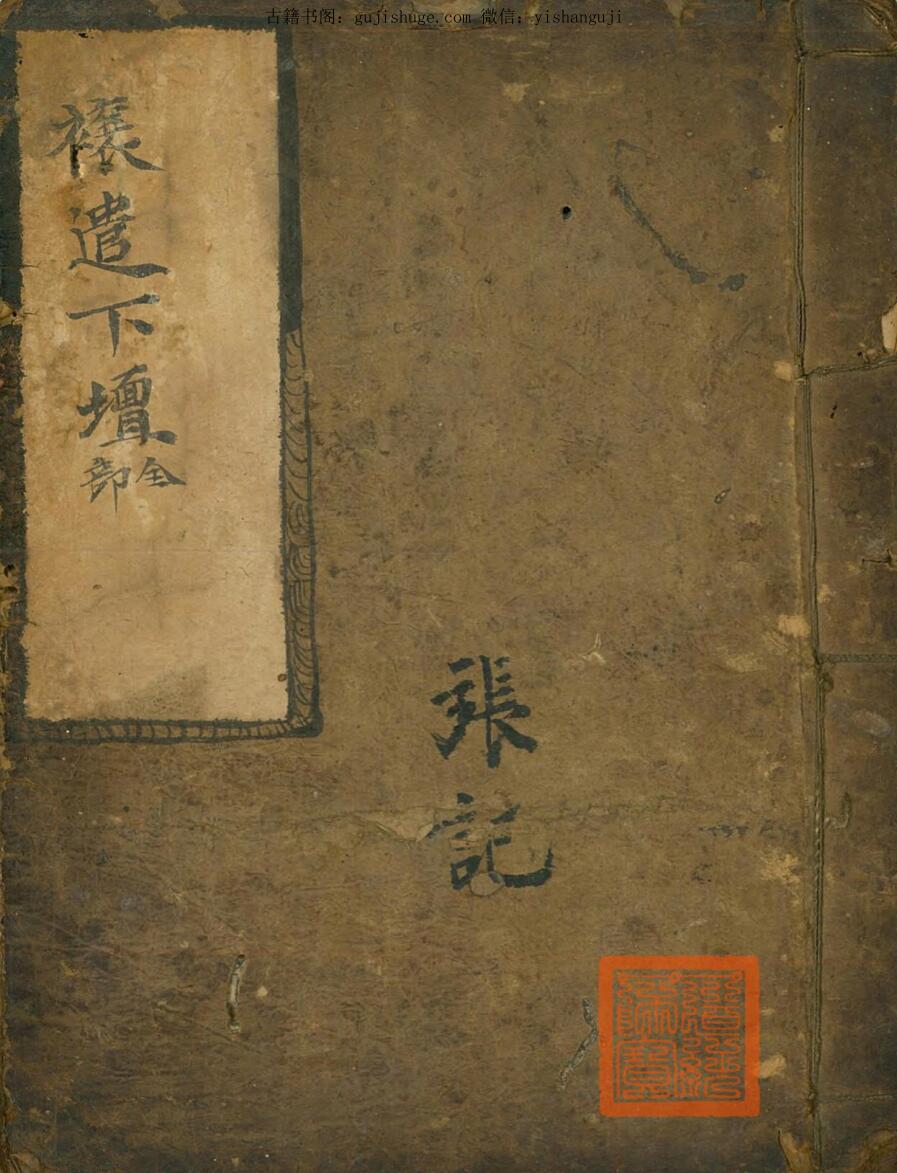 古籍书阁：gujishuge.com 微信：yishanguji
禳遣下壇
全部
張記